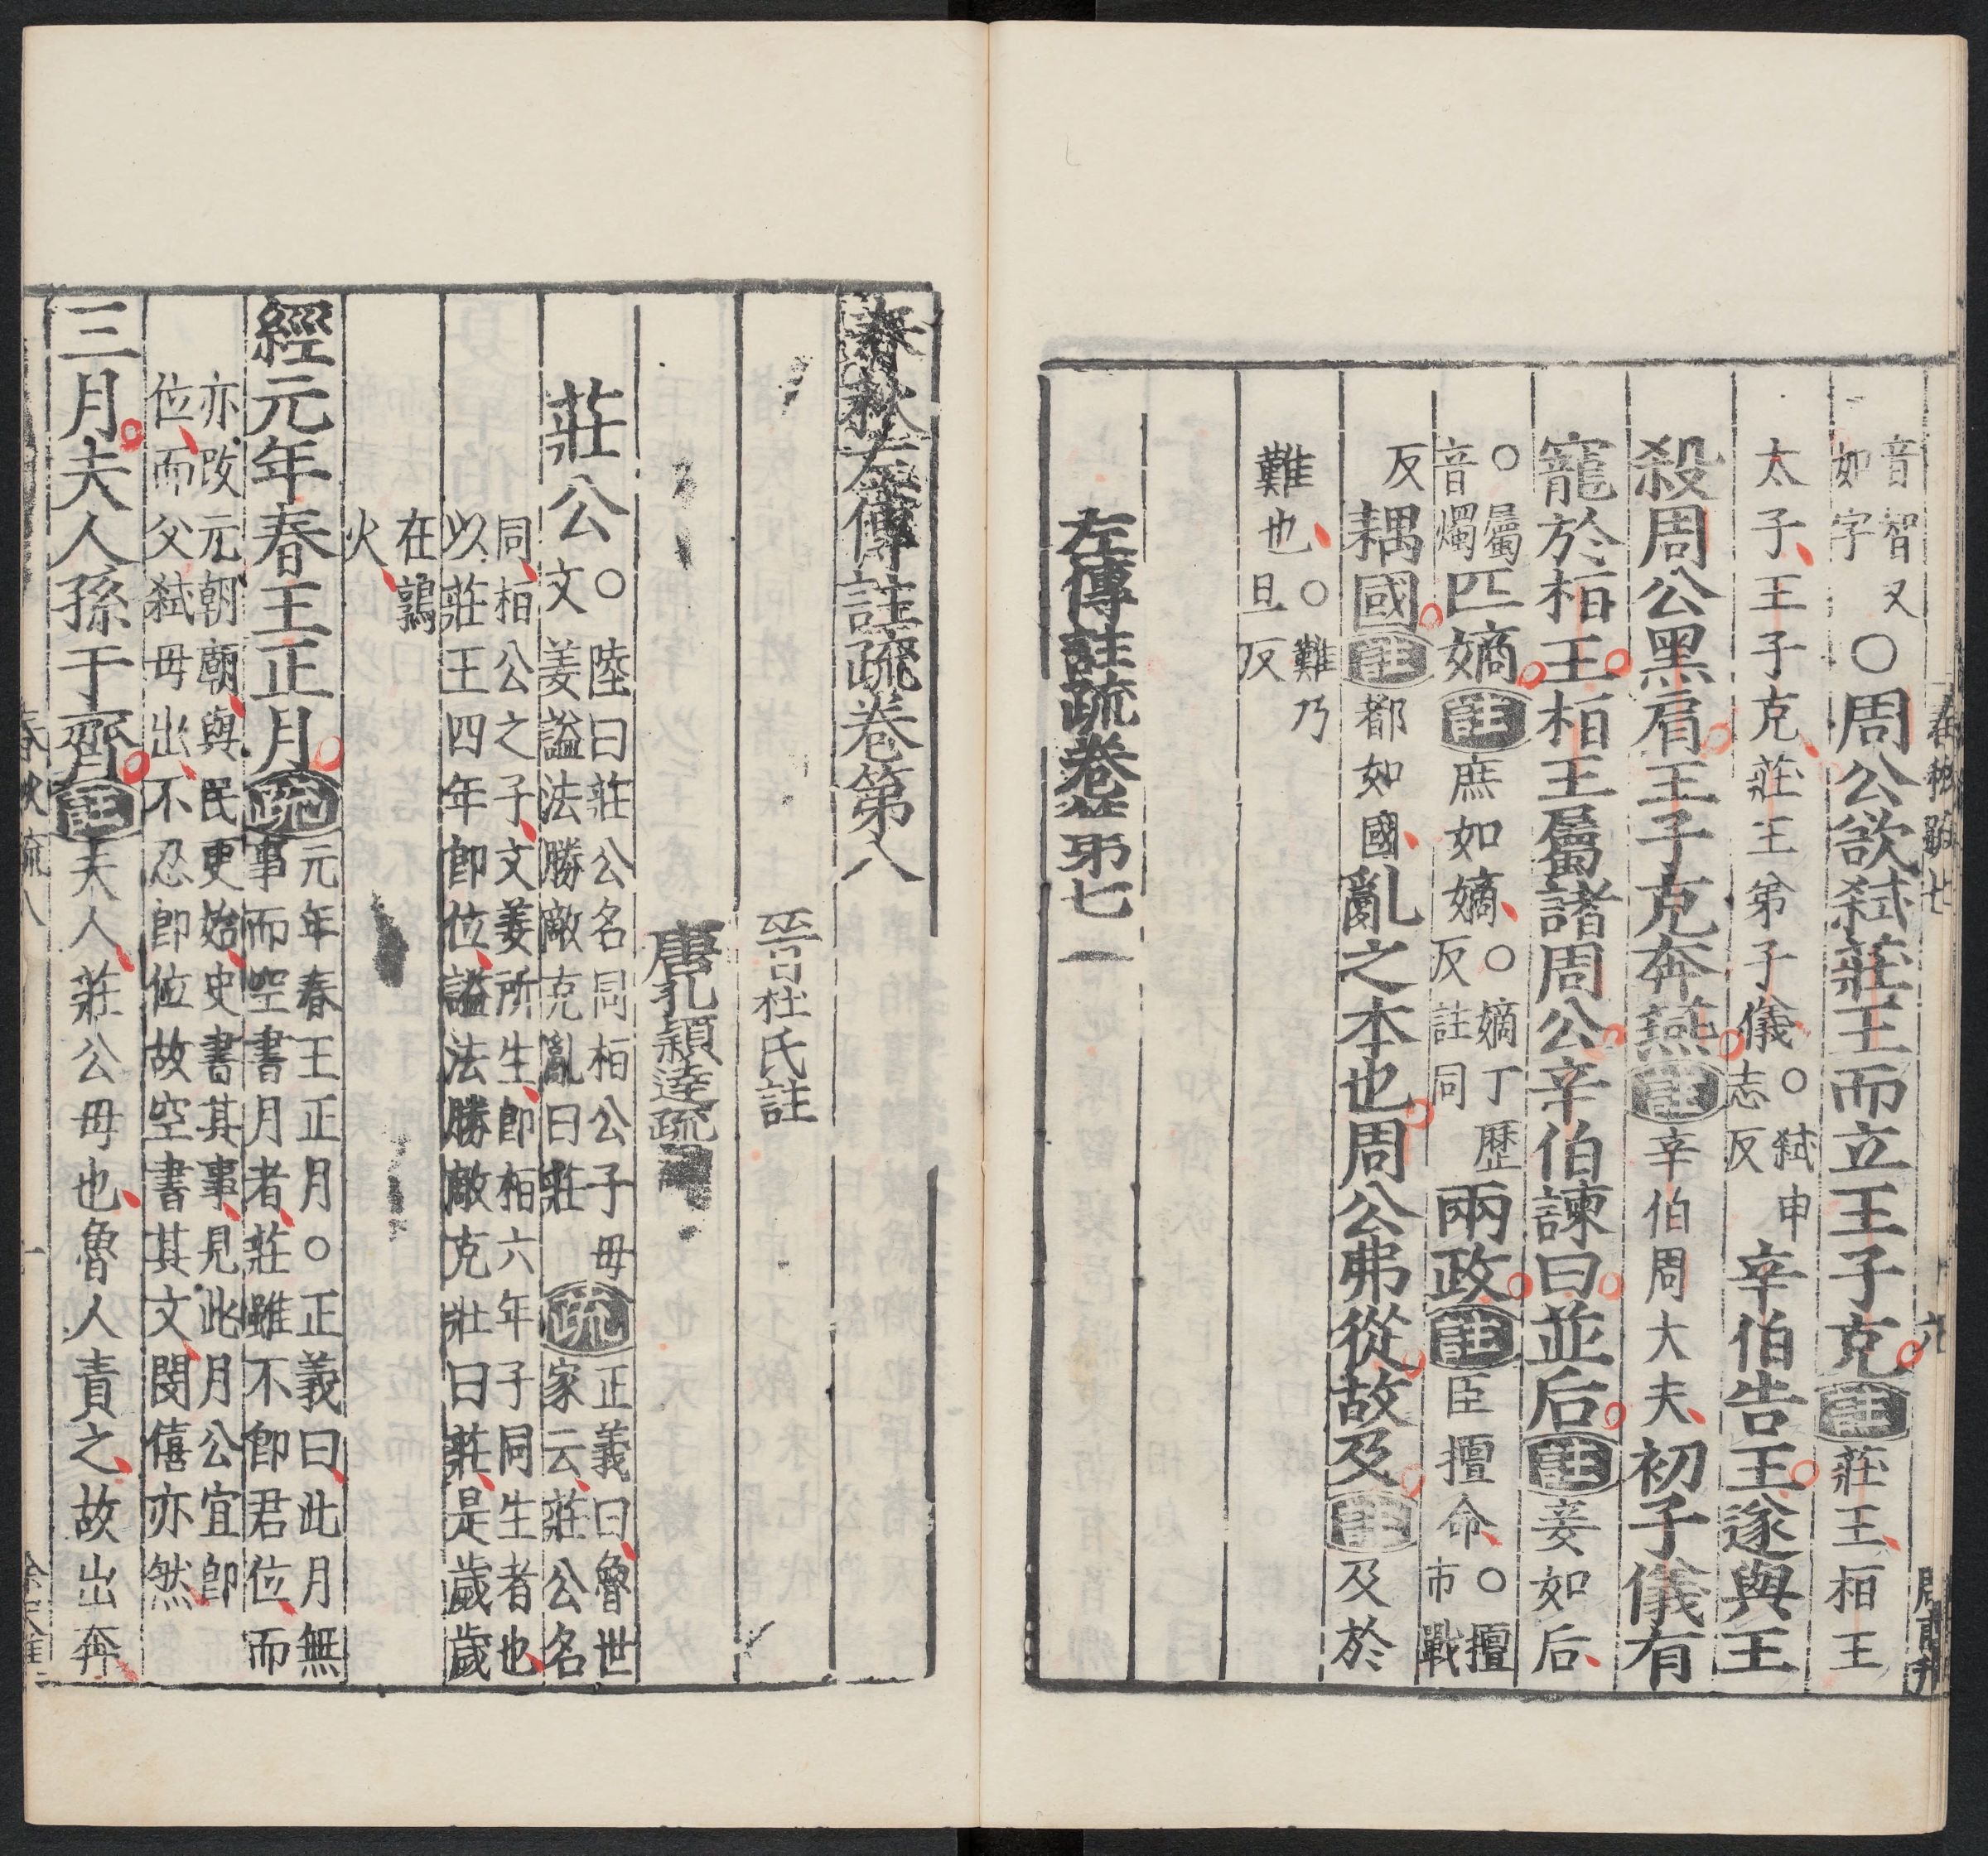 音智又
如字
○周公欲弑莊王而立王子克註莊王桓王
太子王子克莊王弟子儀○弑申
志反
辛伯告王遂與王
殺周公黑肩王子克奔燕註辛伯周大夫初子儀有
寵於桓王桓王屬諸周公辛伯諫曰並后註妾如后
○屬
音燭
匹嫡註庶如嫡○嫡丁歷
反註同
兩政註臣擅命○擅
市戰
反
耦國註都如國亂之本也周公弗從故及註及於
難也○難乃
旦反
左傳註疏卷第七
春秋疏七
六
春秋左傳註疏卷第八
晉杜氏註
唐孔穎達疏
莊公○陸曰莊公名同桓公子母
文姜謚法勝敵克亂曰莊
疏正義曰魯世
家云莊公名
同桓公之子文姜所生即桓六年子同生者也
以莊王四年即位謚法勝敵克壯曰莊是歲歲
在鶉
火
經元年春王正月疏元年春王正月○正義曰此月無
事而空書月者莊雖不即君位而
亦改元朝廟與民更始史書其事見此月公宜即
位而父弑母出不忍即位故空書其文閔僖亦然
三月夫人孫于齊註夫人莊公母也魯人責之故出奔
春秋疏八